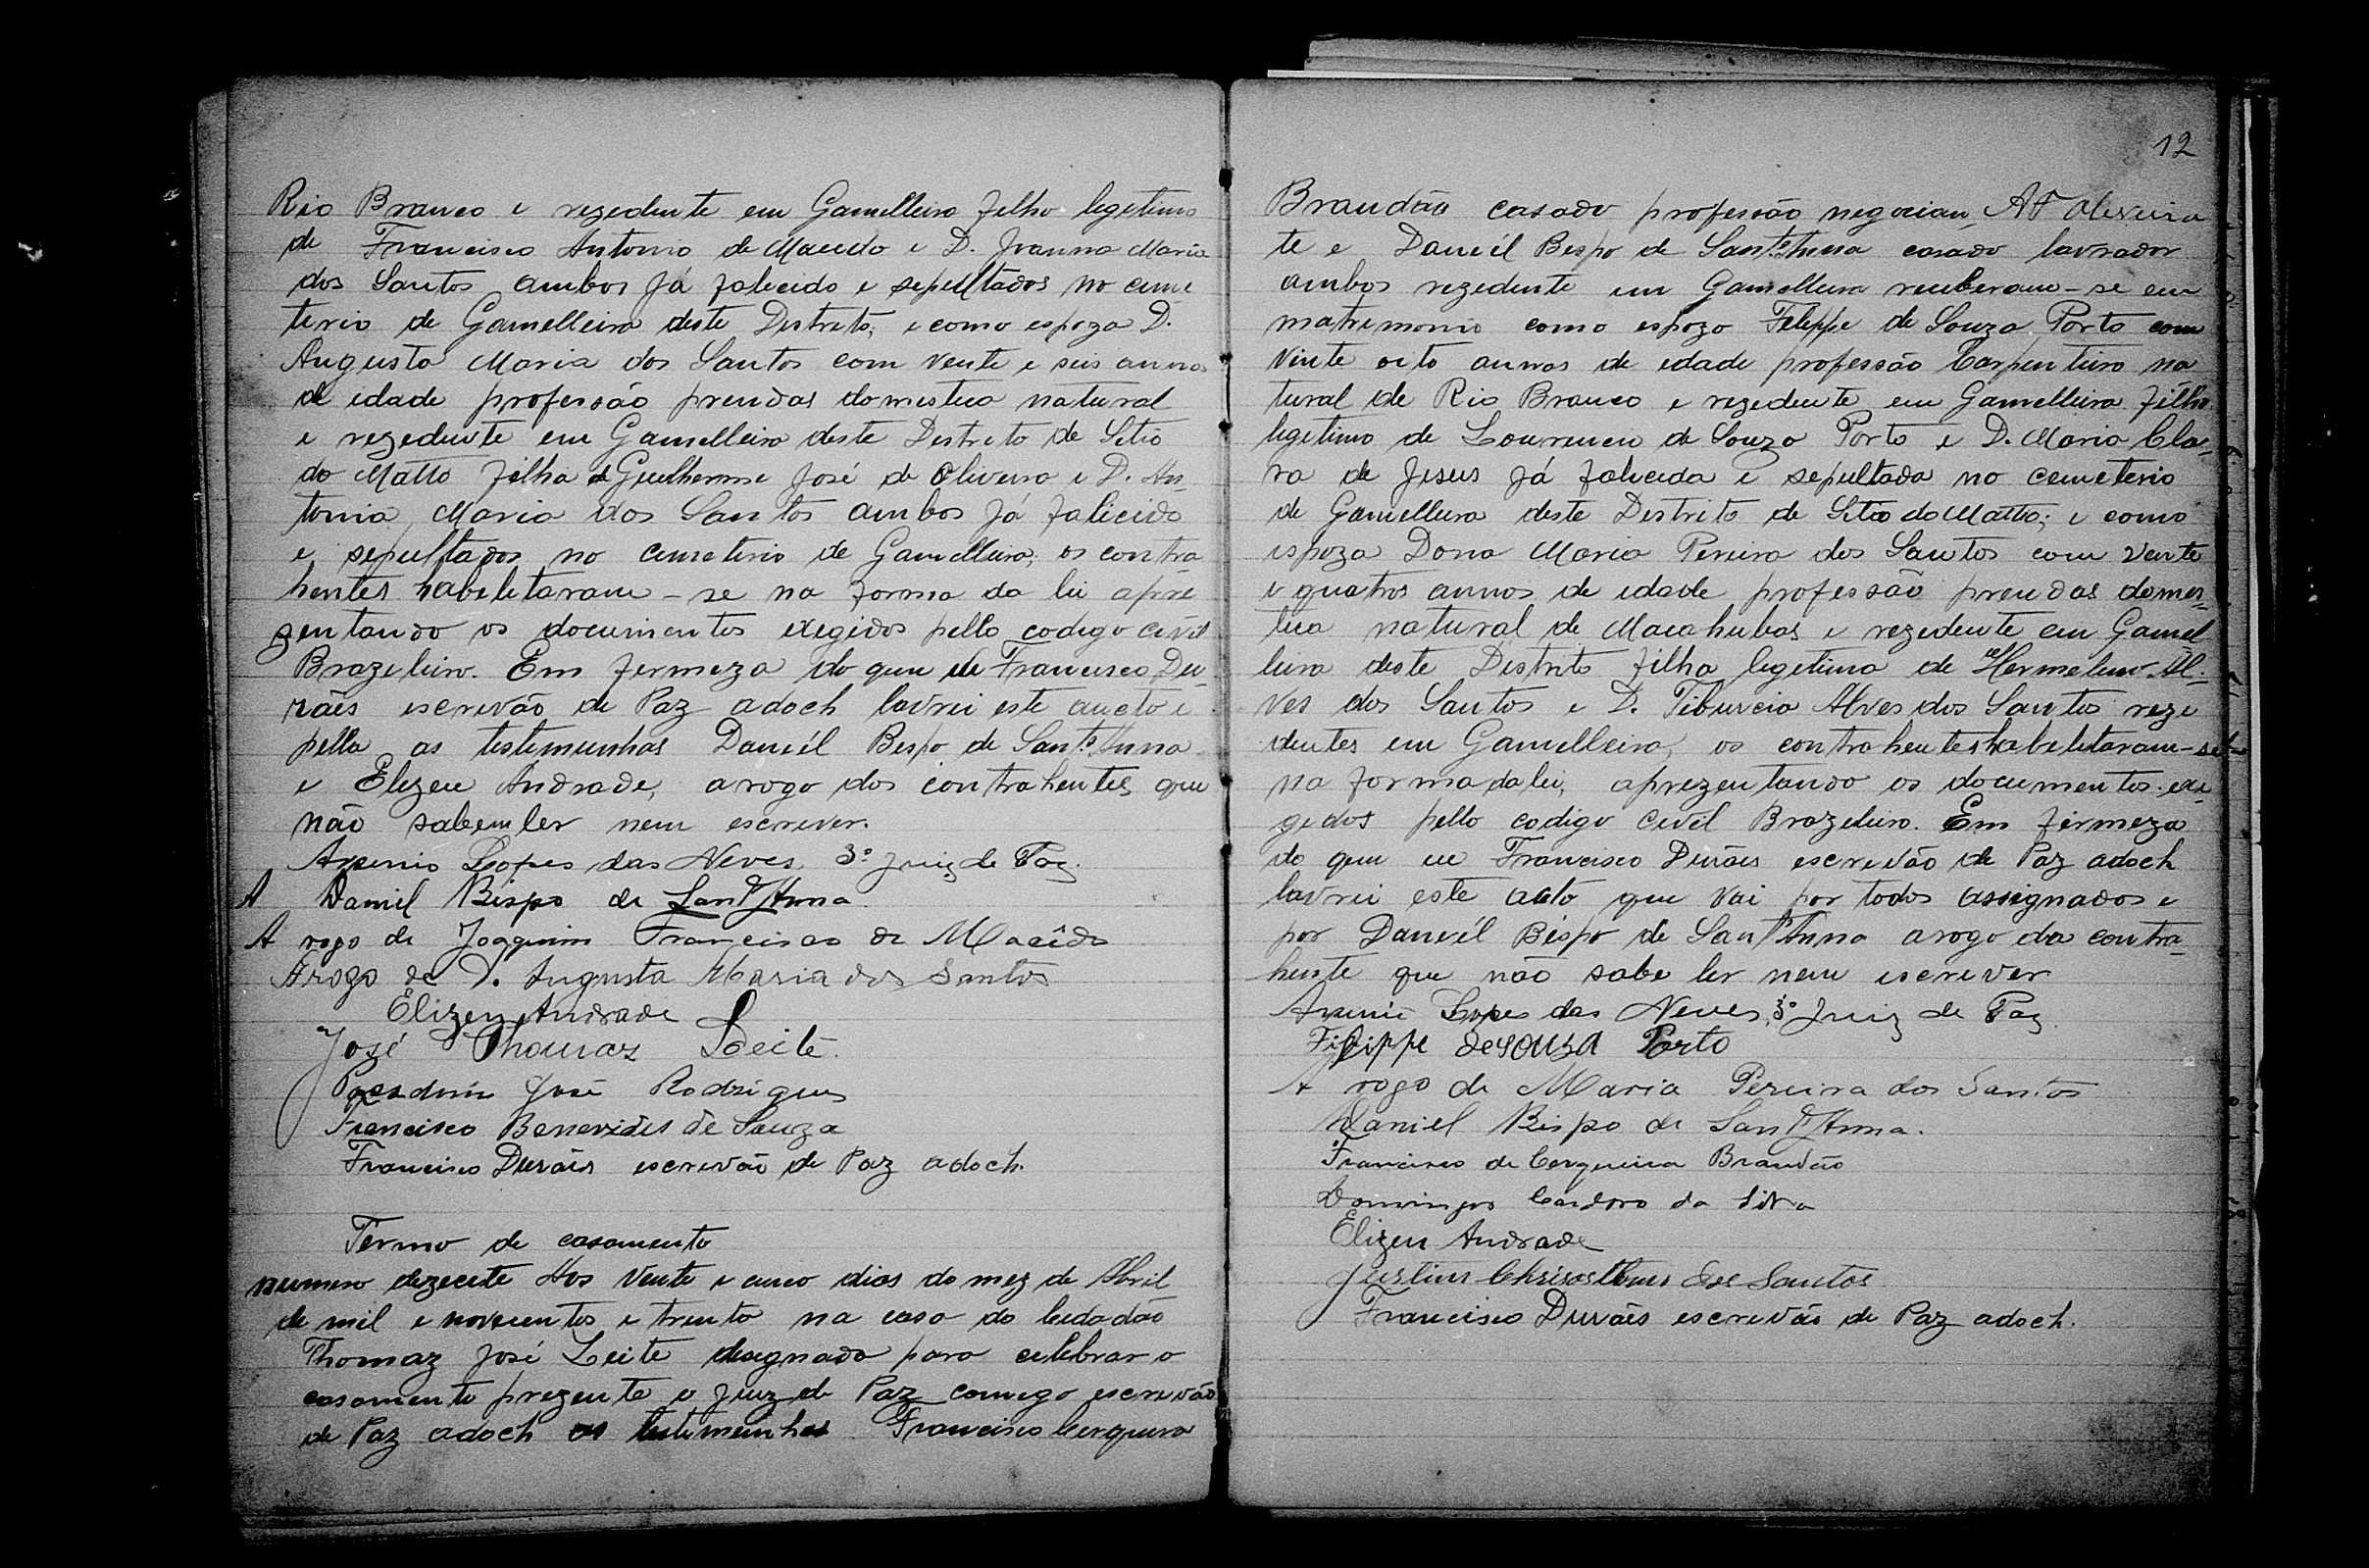 Rio Branco e rezedente em Gamelleira filho legetimo
de Francisco Antonio de Macedo e D. Joanna Maria
dos Santos ambos já falicido e sepultados no ceme
terio de Gamelleira deste Destreto; e como espoza D.
Augusta Maria dos Santos com vente e seis annos
de idade professão prendas domestica natural
e rezedente em Gamelleira deste Destreto de Setio
do Matto filha de Guelherme José de Oliveira e D. An
tonia Maria dos Santos ambos já falicido
e sepultados no cemeterio de Gamelleira; os contra
hentes habeletaram-se na forma da lei apre
zentando os documentos exegidos pello codego civil
Brazeleiro. Em fermeza do que eu Francisco Du
rães escrevão de Paz adoch lavrei este aucto e
pella as testemunhas Daniél Bispo de Sant'Anna
e Elezeu Andrade, arogo dos contrahentes que
não sabem ler nem escrever.
Arsenio Lopes das Neves 3º Juiz de Paz
A Daniel Bispo de Sant'Anna
A rogo de Joaquim Francisco de Macêdo
Arogo de D. Augusta Maria dos Santos
Elizeu Andrade
José Thomaz Leite
José Rodrigues
Francisco Benevides de Souza
Francisco Durães escrevão de Paz adoch.
Termo de casamento
numero dezecete Aos vente e cinco dias do mez de Abril
de mil e novecentos e trenta na casa do Cedadão
Thomaz José Leite designada para celebrar o
casamento prezente o Juiz de Paz comego escrevão
de Paz adoch as testemunhas Francisco Cerqueira
12
Brandão casado professão negocian A F Oliveira
te e Daniél Bespo de Sant'Anna casado lavrador
ambos rezedente em Gamelleira receberam-se em
matremonio como espozo Feleppe de Souza Porto com
vinte oito annos de edade professão Carpenteiro na
tural de Rio Branco e rezedente em Gamelleira filho
legetimo de Lourenço de Souza Porto e D. Maria Cla-
ra de Jesus já falicida e sepultada no cemeterio
de Gamelleira deste Destrito de Setio do Matto; e como
espoza Dona Maria Pereira dos Santos com vente
e quatros annos de edade professão prendas domes-
tica natural de Macahubas e rezedente em Gamel
leira deste Destrito filha legetima de Hermeleno Al-
ves dos Santos e D. Tiburcia Alves dos Santos reze
dentes em Gamelleira, os contrahentes habeletaram-se
na forma da lei, aprezentando os documentos exe-
gedos pello codigo Cevil Brazeleiro. Em firmeza
do que eu Francisco Durães escrevão de Paz adoch
lavrei este acto que vai por todos assignados e
por Daniél Bispo de Sant'Anna arogo da contra-
hente que não sabe ler nem escrever
Arsenio Lopes das Neves, 3º Juiz de Paz
Filippe de SOUSA Porto
A rogo de Maria Pereira dos Santos
Daniel Bispo de Sant'Anna.
Francisco de Cerqueira Brandão
Domingos Cardoso da Silva
Elizeu Andrade
Justino Chrisosthomo dos Santos
Francisco Durães escrevão de Paz adoch.